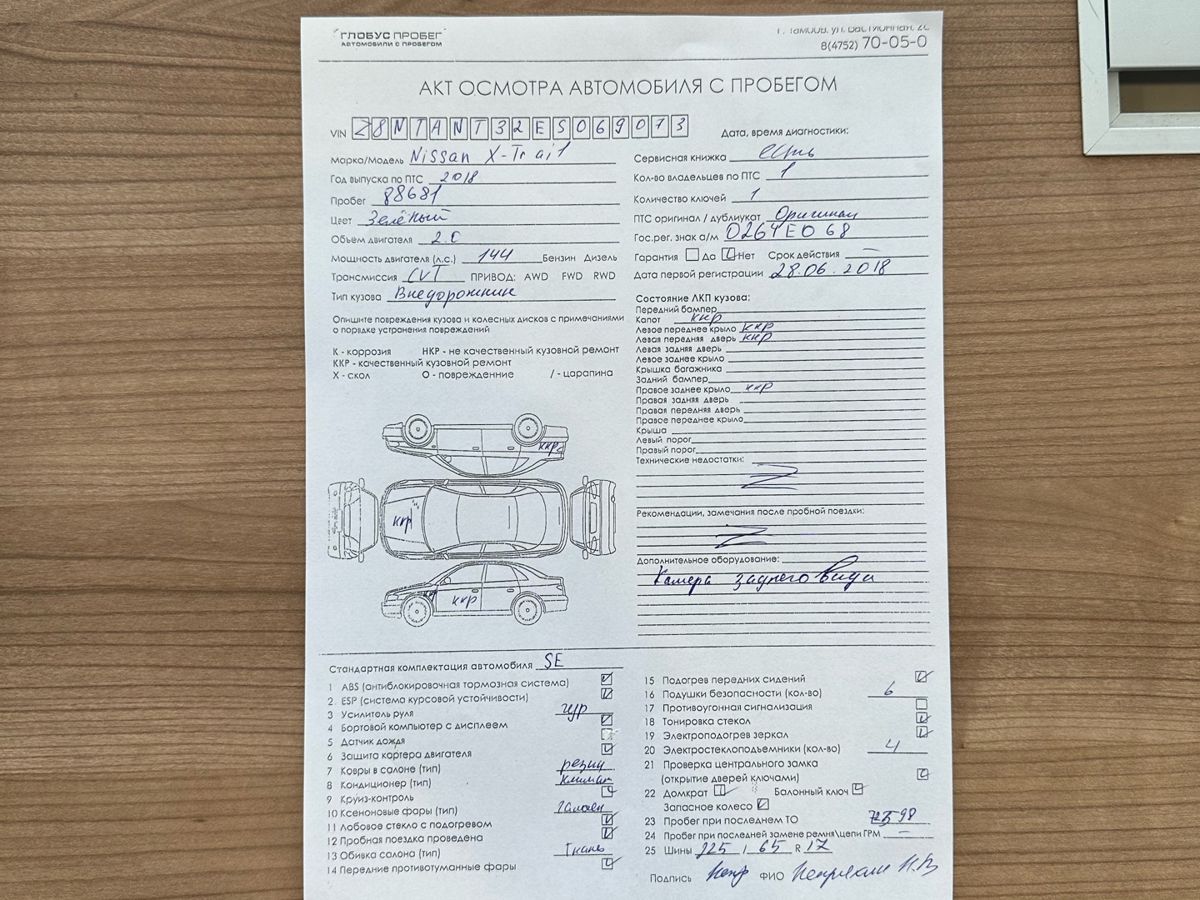 ГЛОБУС ПРОБЕГ
АВТОМОБИЛИ С ПРОБЕГОМ
8(4752) 70-05-0
АКТ ОСМОТРА АВТОМОБИЛЯ С ПРОБЕГОМ
VIN Z8NTANT32ES069073
Марка/Модель Nissan X-Trail
Год выпуска по ПТС 2018
Пробег 88681
Цвет Зелёный
Объем двигателя 2.0
Мощность двигателя (л.с.) 144 Бензин Дизель
Трансмиссия CVT ПРИВОД: AWD FWD RWD
Тип кузова Внедорожник
Дата, время диагностики:
Сервисная книжка есть
Кол-во владельцев по ПТС 1
Количество ключей 1
ПТС оригинал / дубликат Оригинал
Гос.рег. знак а/м О264ЕО 68
Гарантия Да Нет Срок действия —
Дата первой регистрации 28.06.2018
Опишите повреждения кузова и колесных дисков с примечаниями
о порядке устранения повреждений
К - коррозия НКР - не качественный кузовной ремонт
ККР - качественный кузовной ремонт
Х - скол О - повреждение / - царапина
ккр
ккр
ккр
ккр
Состояние ЛКП кузова:
Передний бампер
Капот ккр
Левое переднее крыло ккр
Левая передняя дверь ккр
Левая задняя дверь
Левое заднее крыло
Крышка багажника
Задний бампер
Правое заднее крыло ккр
Правая задняя дверь
Правая передняя дверь
Правое переднее крыло
Крыша
Левый порог
Правый порог
Технические недостатки:
Рекомендации, замечания после пробной поездки:
Дополнительное оборудование:
Камера заднего вида
Стандартная комплектация автомобиля SE
1 ABS (антиблокировочная тормозная система)
2 ESP (система курсовой устойчивости)
3 Усилитель руля гур
4 Бортовой компьютер с дисплеем
5 Датчик дождя
6 Защита картера двигателя
7 Ковры в салоне (тип) резин
8 Кондиционер (тип) климат
9 Круиз-контроль
10 Ксеноновые фары (тип) Галоген
11 Лобовое стекло с подогревом
12 Пробная поездка проведена
13 Обивка салона (тип) Ткань
14 Передние противотуманные фары
15 Подогрев передних сидений
16 Подушки безопасности (кол-во) 6
17 Противоугонная сигнализация
18 Тонировка стекол
19 Электроподогрев зеркал
20 Электростеклоподъемники (кол-во) 4
21 Проверка центрального замка
(открытие дверей ключами)
22 Домкрат Балонный ключ
Запасное колесо
23 Пробег при последнем ТО
24 Пробег при последней замене ремня\цепи ГРМ —
25 Шины 225 / 65 R 17
Подпись ФИО